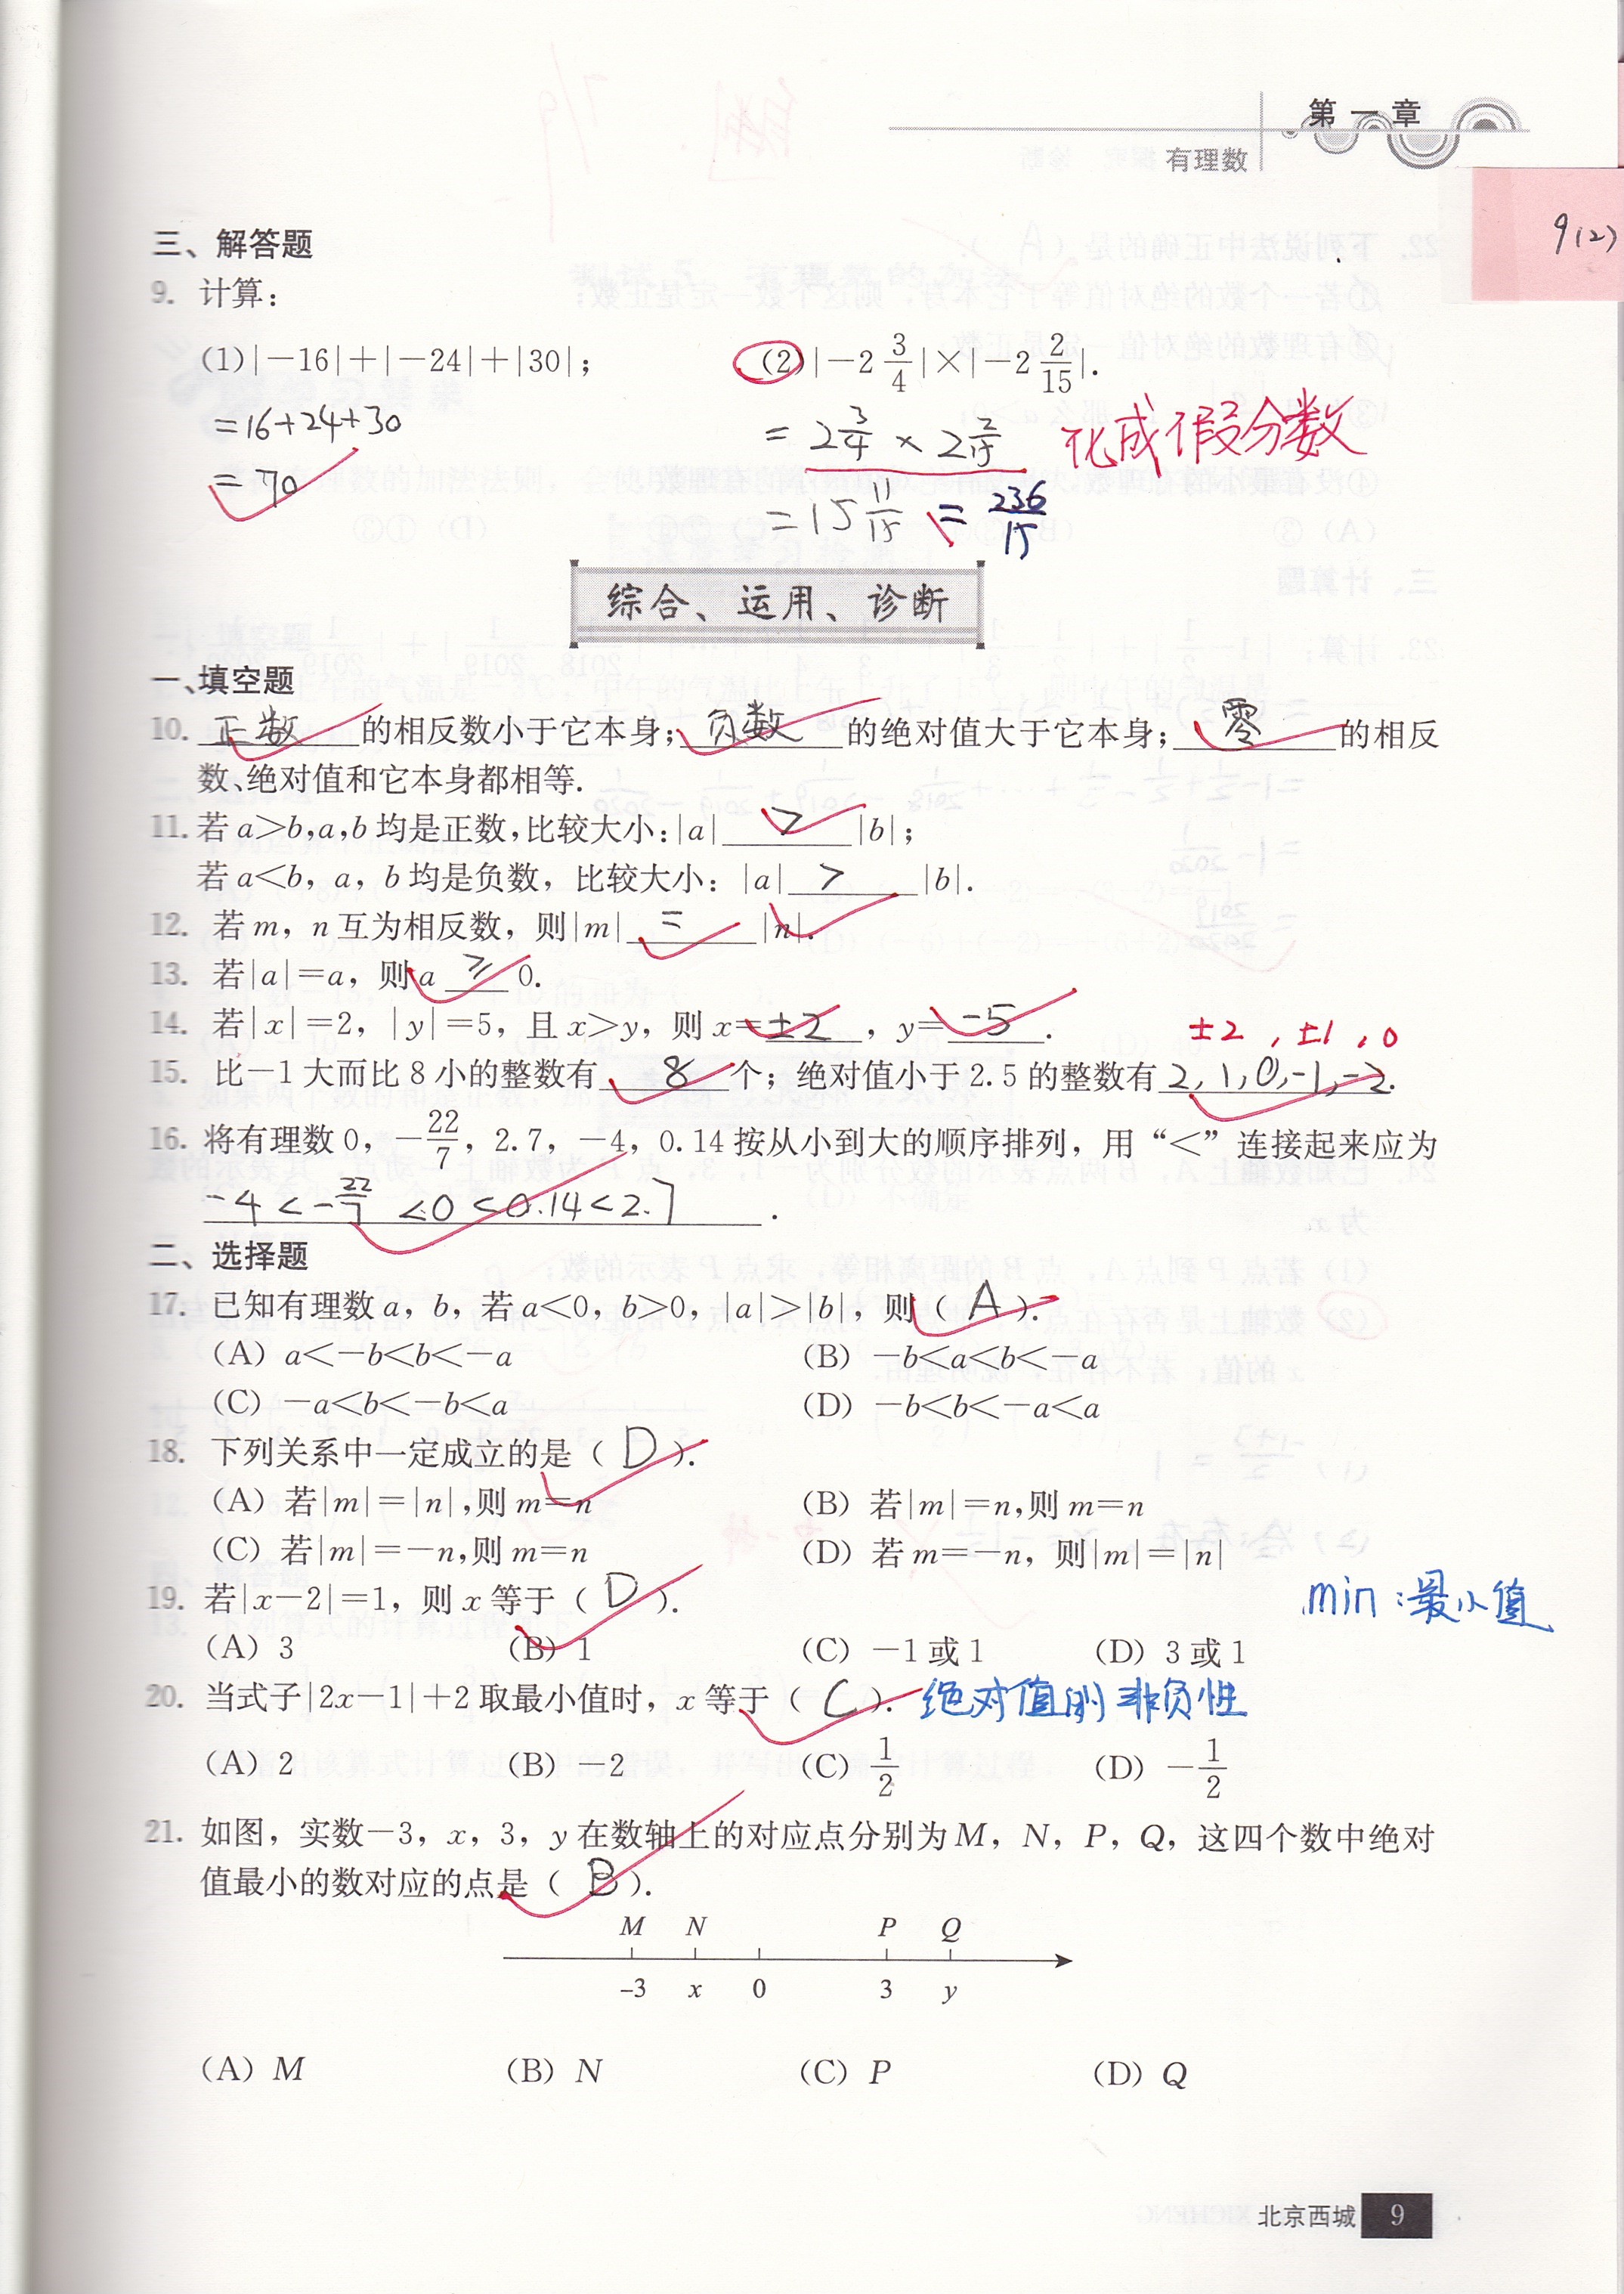 第一章
有理数
9(2)
三、解答题
9. 计算：
(1)|−16|+|−24|+|30|； (2)|−2 3/4|×|−2 2/15|.
=16+24+30 = 2 3/4 × 2 2/15 化成假分数
=70 = 15 11/15 = 236/15
综合、运用、诊断
一、填空题
10. 正数的相反数小于它本身；负数的绝对值大于它本身；零的相反
数、绝对值和它本身都相等.
11. 若 a>b,a,b 均是正数,比较大小：|a| > |b|；
若 a<b，a，b 均是负数，比较大小：|a| > |b|.
12. 若 m，n 互为相反数，则|m| = |n|.
13. 若|a|=a，则 a ⩾ 0.
14. 若|x|=2，|y|=5，且 x>y，则 x=±2，y=−5.
±2，±1，0
15. 比−1大而比8小的整数有 8 个；绝对值小于2.5的整数有 2,1,0,-1,-2.
16. 将有理数0，−22/7，2.7，−4，0.14按从小到大的顺序排列，用“<”连接起来应为
-4<-22/7<0<0.14<2.7.
二、选择题
17. 已知有理数 a，b，若 a<0，b>0，|a|>|b|，则（ A ）.
(A) a<−b<b<−a (B) −b<a<b<−a
(C) −a<b<−b<a (D) −b<b<−a<a
18. 下列关系中一定成立的是（ D ）.
(A) 若|m|=|n|,则 m=n (B) 若|m|=n,则 m=n
(C) 若|m|=−n,则 m=n (D) 若 m=−n，则|m|=|n|
19. 若|x−2|=1，则 x 等于（ D ）. min：最小值
(A) 3 (B) 1 (C) −1或1 (D) 3或1
20. 当式子|2x−1|+2取最小值时，x 等于（ C ）. 绝对值的非负性
(A) 2 (B) −2 (C) 1/2 (D) −1/2
21. 如图，实数−3，x，3，y 在数轴上的对应点分别为 M，N，P，Q，这四个数中绝对
值最小的数对应的点是（ B ）.
M N P Q
−3 x 0 3 y
(A) M (B) N (C) P (D) Q
北京西城 9